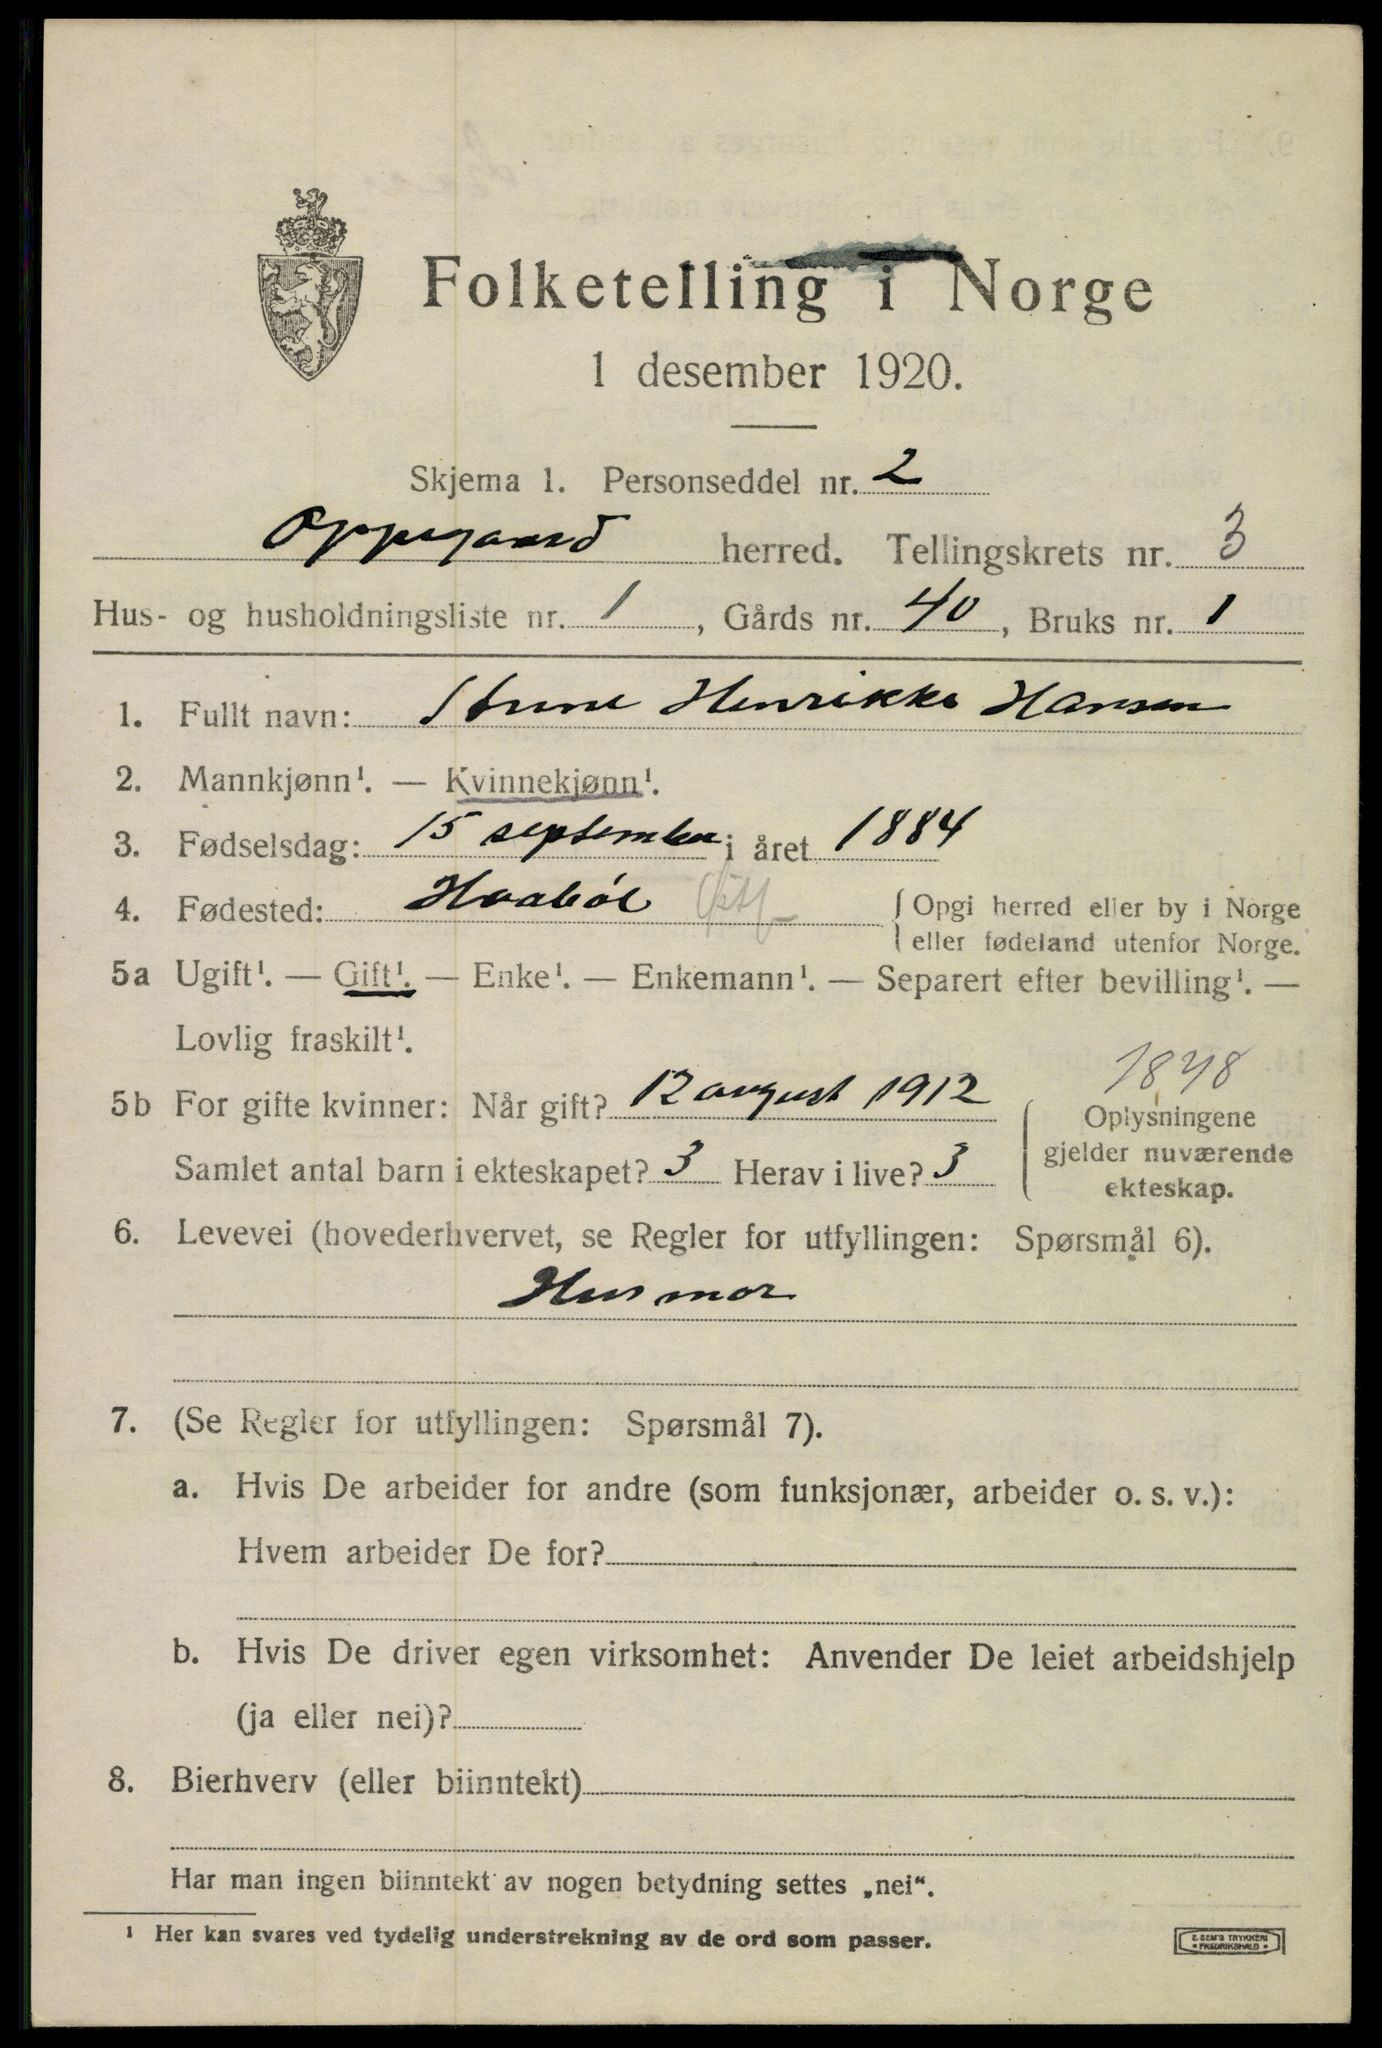 Folketelling i Norge
1 desember 1920.
Skjema 1. Personseddel nr. 2
Oppegaard herred. Tellingskrets nr. 3
Hus- og husholdningsliste nr. 1, Gårds nr. 40, Bruks nr. 1
1. Fullt navn: Henrikke Hansen
2. Mannkjønn¹. — Kvinnekjønn¹.
3. Fødselsdag: 15 september i året 1884
4. Fødested: Haabøl Østf { Opgi herred eller by i Norge
eller fødeland utenfor Norge.
5a Ugift¹. — Gift¹. — Enke¹. — Enkemann¹. — Separert efter bevilling¹. —
Lovlig fraskilt¹.
1848
5b For gifte kvinner: Når gift? 12 august 1912
Samlet antal barn i ekteskapet? 3 Herav i live? 3
Oplysningene
gjelder nuværende
ekteskap.
6. Levevei (hovederhvervet, se Regler for utfyllingen: Spørsmål 6).
Husmor
7. (Se Regler for utfyllingen: Spørsmål 7).
a. Hvis De arbeider for andre (som funksjonær, arbeider o. s. v.):
Hvem arbeider De for?
b. Hvis De driver egen virksomhet: Anvender De leiet arbeidshjelp
(ja eller nei)?
8. Bierhverv (eller biinntekt)
Har man ingen biinntekt av nogen betydning settes „nei“.
¹ Her kan svares ved tydelig understrekning av de ord som passer.
E. SEM'S TRYKKERI
FREDRIKSHALD